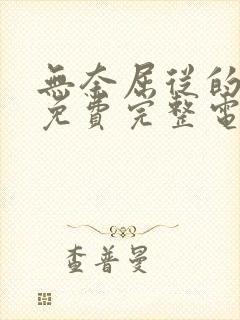 無奈屈從的
免費完整電
查普曼